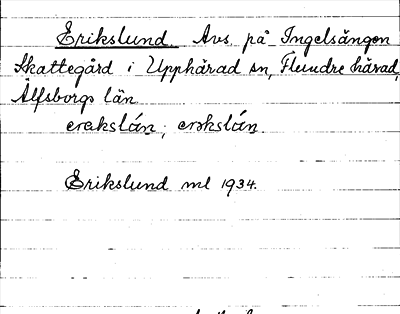 Erikslund. Avs. på Ingelsången
Skattegård i Upphärad sn, Flundre härad,
Älfsborgs län
erəkslán; erəkslán.
Erikslund ml 1934.